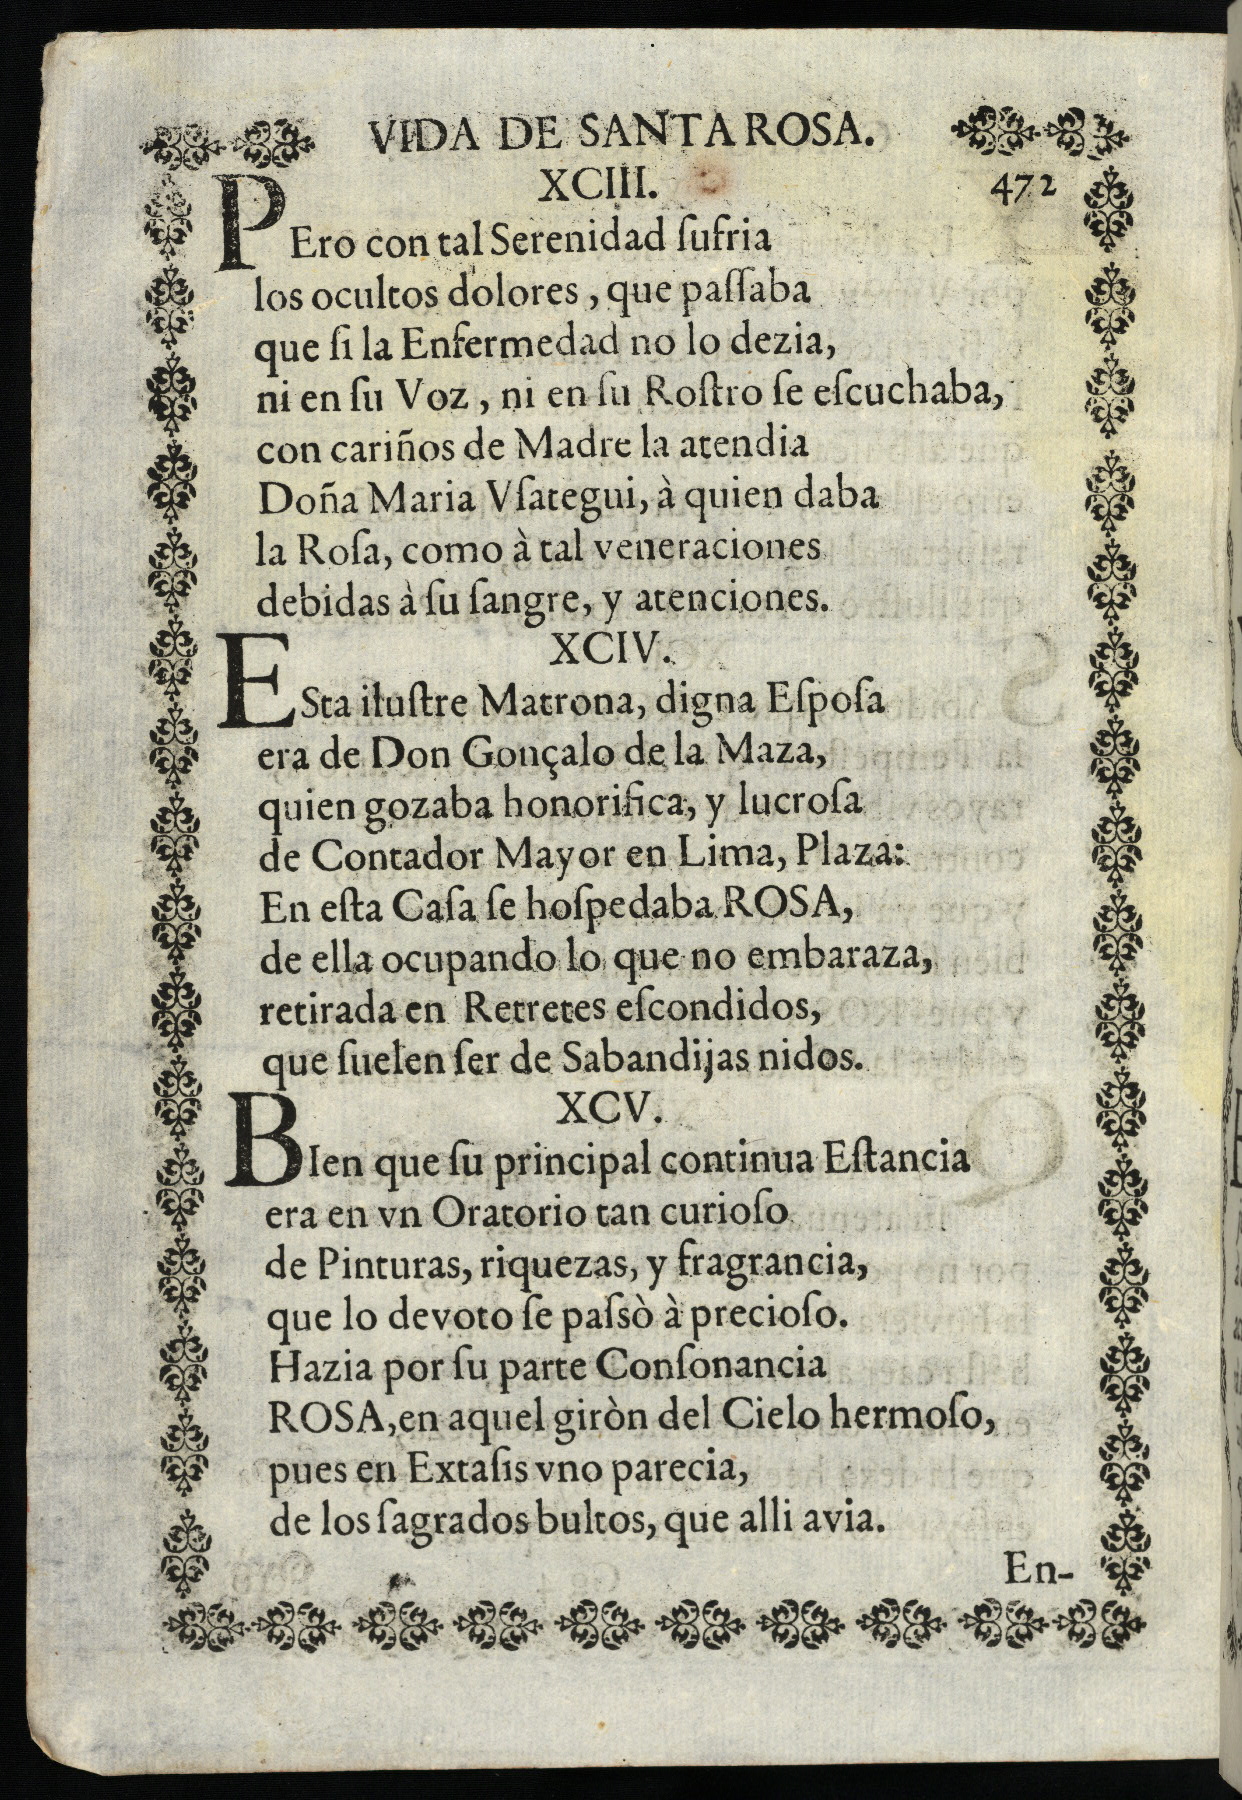 VIDA DE SANTA ROSA.
XCIII. 472
PEro con tal Serenidad ſufria
los ocultos dolores, que paſſaba
que ſi la Enfermedad no lo dezia,
ni en ſu Voz, ni en ſu Roſtro ſe eſcuchaba,
con cariños de Madre la atendia
Doña Maria Vſategui, à quien daba
la Roſa, como à tal veneraciones
debidas à ſu ſangre, y atenciones.
XCIV.
ESta iluſtre Matrona, digna Eſpoſa
era de Don Gonçalo de la Maza,
quien gozaba honorifica, y lucroſa
de Contador Mayor en Lima, Plaza:
En eſta Caſa ſe hoſpedaba ROSA,
de ella ocupando lo que no embaraza,
retirada en Retretes eſcondidos,
que ſuelen ſer de Sabandijas nidos.
XCV.
BIen que ſu principal continua Eſtancia
era en vn Oratorio tan curioſo
de Pinturas, riquezas, y fragrancia,
que lo devoto ſe paſsò à precioſo.
Hazia por ſu parte Conſonancia
ROSA, en aquel giròn del Cielo hermoſo,
pues en Extaſis vno parecia,
de los ſagrados bultos, que alli avia.
En-